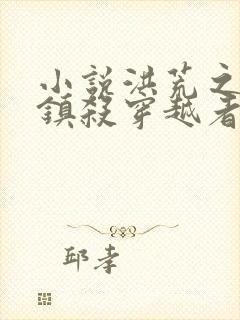 小説洪荒之
鎮殺穿越者
邱孝